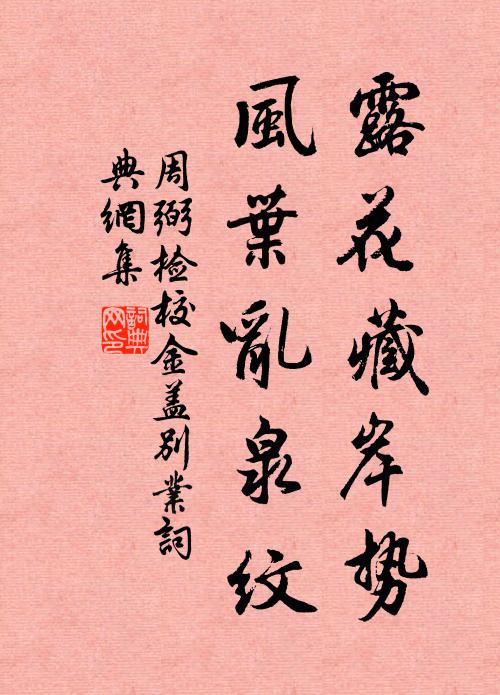 露花藏岸势
風葉亂泉紋
周弼检校金盖别業詞
典網集
詞典网印